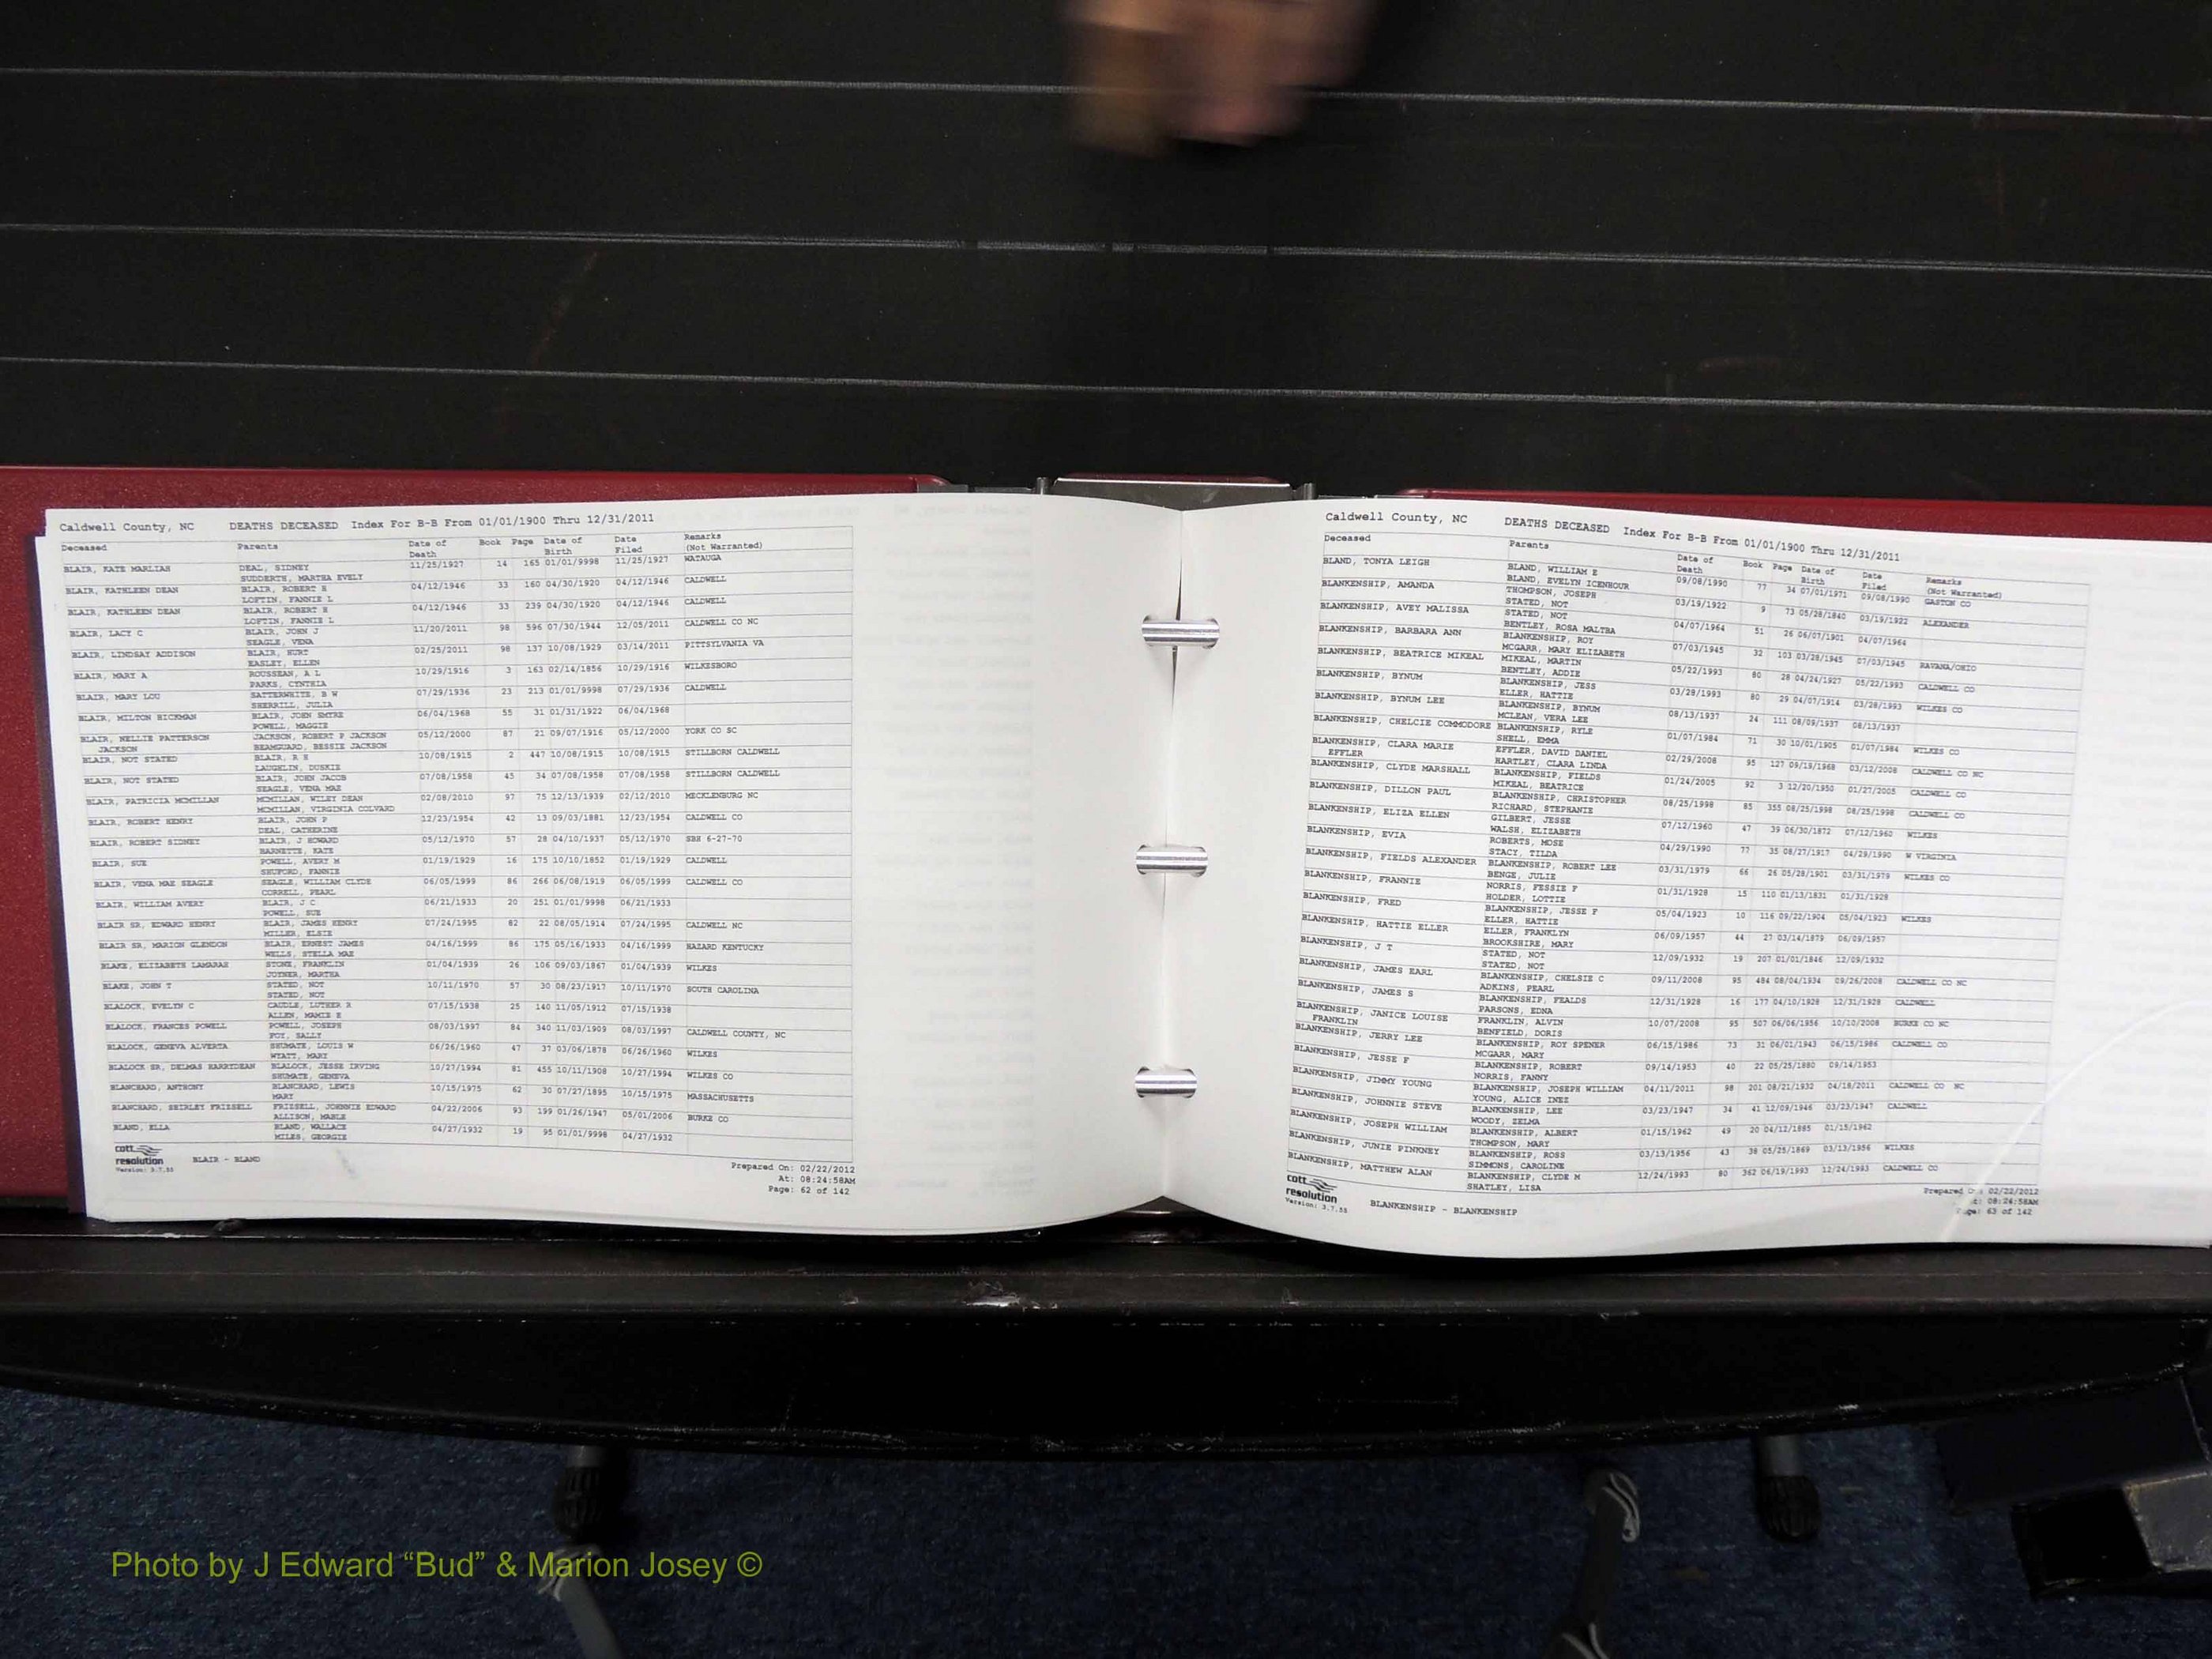 Caldwell County, NC DEATHS DECEASED Index For B-B From 01/01/1900 Thru 12/31/2011
Deceased Parents Date of Death Book Page Date of Birth Date Filed Remarks (Not Warranted)
BLAIR, KATE MARLIAH DEAL, SIDNEY 11/25/1927 14 165 01/01/9998 11/25/1927 WATAUGA
SUDDERTH, MARTHA EVELY
BLAIR, KATHLEEN DEAN BLAIR, ROBERT H 04/12/1946 33 160 04/30/1920 04/12/1946 CALDWELL
LOFTIN, FANNIE L
BLAIR, KATHLEEN DEAN BLAIR, ROBERT H 04/12/1946 33 239 04/30/1920 04/12/1946 CALDWELL
LOFTIN, FANNIE L
BLAIR, LACY C BLAIR, JOHN J 11/20/2011 98 596 07/30/1944 12/05/2011 CALDWELL CO NC
SEAGLE, VENA
BLAIR, LINDSAY ADDISON BLAIR, HURT 02/25/2011 98 137 10/08/1929 03/14/2011 PITTSYLVANIA VA
EASLEY, ELLEN
BLAIR, MARY A ROUSSEAN, A L 10/29/1916 3 163 02/14/1856 10/29/1916 WILKESBORO
PARKS, CYNTHIA
BLAIR, MARY LOU SATTERWHITE, B W 07/29/1936 23 213 01/01/9998 07/29/1936 CALDWELL
SHERRILL, JULIA
BLAIR, MILTON HICKMAN BLAIR, JOHN EMTRE 06/04/1968 55 31 01/31/1922 06/04/1968
POWELL, MAGGIE
BLAIR, NELLIE PATTERSON JACKSON, ROBERT P JACKSON 05/12/2000 87 21 09/07/1916 05/12/2000 YORK CO SC
JACKSON BEAMGUARD, BESSIE JACKSON
BLAIR, NOT STATED BLAIR, R H 10/08/1915 2 447 10/08/1915 10/08/1915 STILLBORN CALDWELL
LAUGHLIN, DUSKIE
BLAIR, NOT STATED BLAIR, JOHN JACOB 07/08/1958 45 34 07/08/1958 07/08/1958 STILLBORN CALDWELL
SEAGLE, VENA MAE
BLAIR, PATRICIA MCMILLAN MCMILLAN, WILEY DEAN 02/08/2010 97 75 12/13/1939 02/12/2010 MECKLENBURG NC
MCMILLAN, VIRGINIA COLVARD
BLAIR, ROBERT HENRY BLAIR, JOHN P 12/23/1954 42 13 09/03/1881 12/23/1954 CALDWELL CO
DEAL, CATHERINE
BLAIR, ROBERT SIDNEY BLAIR, J HOWARD 05/12/1970 57 28 04/10/1937 05/12/1970 SBH 6-27-70
BARNETTE, KATE
BLAIR, SUE POWELL, AVERY M 01/19/1929 16 175 10/10/1852 01/19/1929 CALDWELL
SHUFORD, FANNIE
BLAIR, VENA MAE SEAGLE SEAGLE, WILLIAM CLYDE 06/05/1999 86 266 06/08/1919 06/05/1999 CALDWELL CO
CORRELL, PEARL
BLAIR, WILLIAM AVERY BLAIR, J C 06/21/1933 20 251 01/01/9998 06/21/1933
POWELL, SUE
BLAIR SR, EDWARD HENRY BLAIR, JAMES HENRY 07/24/1995 82 22 08/05/1914 07/24/1995 CALDWELL NC
MILLER, ELSIE
BLAIR SR, MARION GLENDON BLAIR, ERNEST JAMES 04/16/1999 86 175 05/16/1933 04/16/1999 HAZARD KENTUCKY
WELLS, STELLA MAE
BLAKE, ELIZABETH LAMARAH STONE, FRANKLIN 01/04/1939 26 106 09/03/1867 01/04/1939 WILKES
JOYNER, MARTHA
BLAKE, JOHN T STATED, NOT 10/11/1970 57 30 08/23/1917 10/11/1970 SOUTH CAROLINA
STATED, NOT
BLALOCK, EVELYN C CAUDLE, LUTHER R 07/15/1938 25 140 11/05/1912 07/15/1938
ALLEN, MAMIE E
BLALOCK, FRANCES POWELL POWELL, JOSEPH 08/03/1997 84 340 11/03/1909 08/03/1997 CALDWELL COUNTY, NC
FOY, SALLY
BLALOCK, GENEVA ALVERTA SHUMATE, LOUIS W 06/26/1960 47 37 03/06/1878 06/26/1960 WILKES
WYATT, MARY
BLALOCK SR, DELMAS HARRYDEAN BLALOCK, JESSE IRVING 10/27/1994 81 455 10/11/1908 10/27/1994 WILKES CO
SHUMATE, GENEVA
BLANCHARD, ANTHONY BLANCHARD, LEWIS 10/15/1975 62 30 07/27/1895 10/15/1975 MASSACHUSETTS
MARY
BLANCHARD, SHIRLEY FRIZSELL FRIZSELL, JOHNNIE EDWARD 04/22/2006 93 199 01/26/1947 05/01/2006 BURKE CO
ALLISON, MABLE
BLAND, ELLA BLAND, WALLACE 04/27/1932 19 95 01/01/9998 04/27/1932
MILES, GEORGIE
cott
resolution
Version: 3.7.55
BLAIR - BLAND
Prepared On: 02/22/2012
At: 08:24:58AM
Page: 62 of 142
Caldwell County, NC DEATHS DECEASED Index For B-B From 01/01/1900 Thru 12/31/2011
Deceased Parents Date of Death Book Page Date of Birth Date Filed Remarks (Not Warranted)
BLAND, TONYA LEIGH BLAND, WILLIAM E 09/08/1990 77 34 07/01/1971 09/08/1990 GASTON CO
BLAND, EVELYN ICENHOUR
BLANKENSHIP, AMANDA THOMPSON, JOSEPH 03/19/1922 9 73 05/28/1840 03/19/1922 ALEXANDER
STATED, NOT
BLANKENSHIP, AVEY MALISSA STATED, NOT 04/07/1964 51 26 06/07/1901 04/07/1964
BENTLEY, ROSA MALTBA
BLANKENSHIP, BARBARA ANN BLANKENSHIP, ROY 07/03/1945 32 103 03/28/1945 07/03/1945 RAVANA/OHIO
MCGARR, MARY ELIZABETH
BLANKENSHIP, BEATRICE MIKEAL MIKEAL, MARTIN 05/22/1993 80 28 04/24/1927 05/22/1993 CALDWELL CO
BENTLEY, ADDIE
BLANKENSHIP, BYNUM BLANKENSHIP, JESS 03/28/1993 80 29 04/07/1914 03/28/1993 WILKES CO
ELLER, HATTIE
BLANKENSHIP, BYNUM LEE BLANKENSHIP, BYNUM 08/13/1937 24 111 08/09/1937 08/13/1937
MCLEAN, VERA LEE
BLANKENSHIP, CHELCIE COMMODORE BLANKENSHIP, RYLE 01/07/1984 71 30 10/01/1905 01/07/1984 WILKES CO
SHELL, EMMA
BLANKENSHIP, CLARA MARIE EFFLER, DAVID DANIEL 02/29/2008 95 127 09/19/1968 03/12/2008 CALDWELL CO NC
EFFLER HARTLEY, CLARA LINDA
BLANKENSHIP, CLYDE MARSHALL BLANKENSHIP, FIELDS 01/24/2005 92 3 12/20/1950 01/27/2005 CALDWELL CO
MIKEAL, BEATRICE
BLANKENSHIP, DILLON PAUL BLANKENSHIP, CHRISTOPHER 08/25/1998 85 355 08/25/1998 08/25/1998 CALDWELL CO
RICHARD, STEPHANIE
BLANKENSHIP, ELIZA ELLEN GILBERT, JESSE 07/12/1960 47 39 06/30/1872 07/12/1960 WILKES
WALSH, ELIZABETH
BLANKENSHIP, EVIA ROBERTS, MOSE 04/29/1990 77 35 08/27/1917 04/29/1990 W VIRGINIA
STACY, TILDA
BLANKENSHIP, FIELDS ALEXANDER BLANKENSHIP, ROBERT LEE 03/31/1979 66 26 05/28/1901 03/31/1979 WILKES CO
BENGE, JULIE
BLANKENSHIP, FRANNIE NORRIS, FESSIE F 01/31/1928 15 110 01/13/1831 01/31/1928
HOLDER, LOTTIE
BLANKENSHIP, FRED BLANKENSHIP, JESSE F 05/04/1923 10 116 09/22/1904 05/04/1923 WILKES
ELLER, HATTIE
BLANKENSHIP, HATTIE ELLER ELLER, FRANKLYN 06/09/1957 44 27 03/14/1879 06/09/1957
BROOKSHIRE, MARY
BLANKENSHIP, J T STATED, NOT 12/09/1932 19 207 01/01/1846 12/09/1932
STATED, NOT
BLANKENSHIP, JAMES EARL BLANKENSHIP, CHELSIE C 09/11/2008 95 484 08/04/1934 09/26/2008 CALDWELL CO NC
ADKINS, PEARL
BLANKENSHIP, JAMES S BLANKENSHIP, FEALDS 12/31/1928 16 177 04/10/1928 12/31/1928 CALDWELL
PARSONS, EDNA
BLANKENSHIP, JANICE LOUISE FRANKLIN, ALVIN 10/07/2008 95 507 06/06/1956 10/10/2008 BURKE CO NC
FRANKLIN BENFIELD, DORIS
BLANKENSHIP, JERRY LEE BLANKENSHIP, ROY SPENER 06/15/1986 73 31 06/01/1943 06/15/1986 CALDWELL CO
MCGARR, MARY
BLANKENSHIP, JESSE F BLANKENSHIP, ROBERT 09/14/1953 40 22 05/25/1880 09/14/1953
NORRIS, FANNY
BLANKENSHIP, JIMMY YOUNG BLANKENSHIP, JOSEPH WILLIAM 04/11/2011 98 201 08/21/1932 04/18/2011 CALDWELL CO NC
YOUNG, ALICE INEZ
BLANKENSHIP, JOHNNIE STEVE BLANKENSHIP, LEE 03/23/1947 34 41 12/09/1946 03/23/1947 CALDWELL
WOODY, ZELMA
BLANKENSHIP, JOSEPH WILLIAM BLANKENSHIP, ALBERT 01/15/1962 49 20 04/12/1885 01/15/1962
THOMPSON, MARY
BLANKENSHIP, JUNIE PINKNEY BLANKENSHIP, ROSS 03/13/1956 43 38 05/25/1869 03/13/1956 WILKES
SIMMONS, CAROLINE
BLANKENSHIP, MATTHEW ALAN BLANKENSHIP, CLYDE M 12/24/1993 80 362 06/19/1993 12/24/1993 CALDWELL CO
SHATLEY, LISA
cott
resolution
Version: 3.7.55
BLANKENSHIP - BLANKENSHIP
Prepared On: 02/22/2012
At: 08:24:58AM
Page: 63 of 142
Photo by J Edward “Bud” & Marion Josey ©